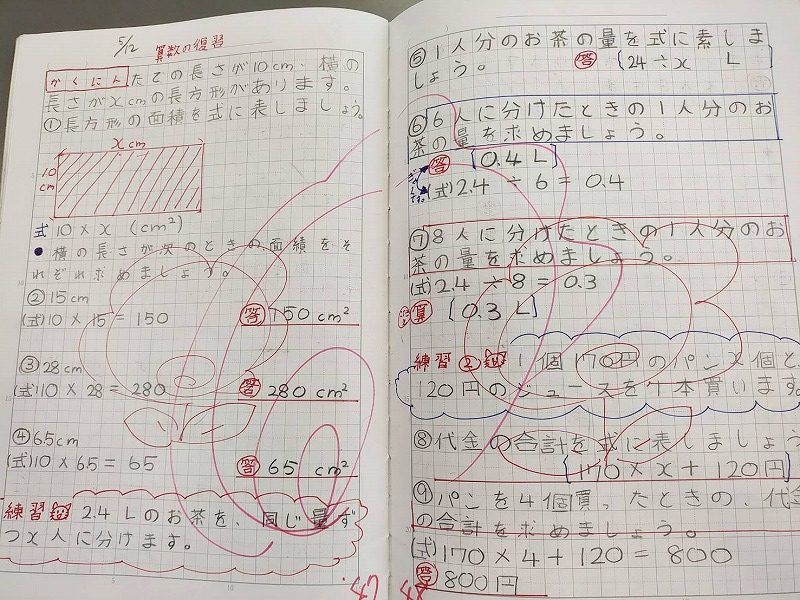 5/12 算数の復習
かくにん たての長さが10cm、横の
長さがxcmの長方形があります。
①長方形の面積を式に表しましょう。
xcm
10
cm
式 10×x (cm²)
●横の長さが次のときの面積をそ
れぞれ求めましょう。
②15cm
(式)10×15=150
答 150cm²
③28cm
(式)10×28=280
答 280cm²
④6.5cm
(式)10×6.5=65
答 65cm²
練習 2.4Lのお茶を、同じ量ず
つx人に分けます。
47
⑤1人分のお茶の量を式に素しま
しょう。 答 〔24÷x L〕
⑥6人に分けたときの1人分のお
茶の量を求めましょう。
答 〔0.4L〕
(式)2.4÷6=0.4
⑦8人に分けたときの1人分のお
茶の量を求めましょう。
(式)2.4÷8=0.3
〔0.3L〕
練習② 1個170円のパンx個と、
120円のジュースを1本買います。
⑧代金の合計を式に表しましょう
〔170×x+120円〕
⑨パンを4個買、たときの、代金
の合計を求めましょう。
(式)170×4+120=800
答 800円
48